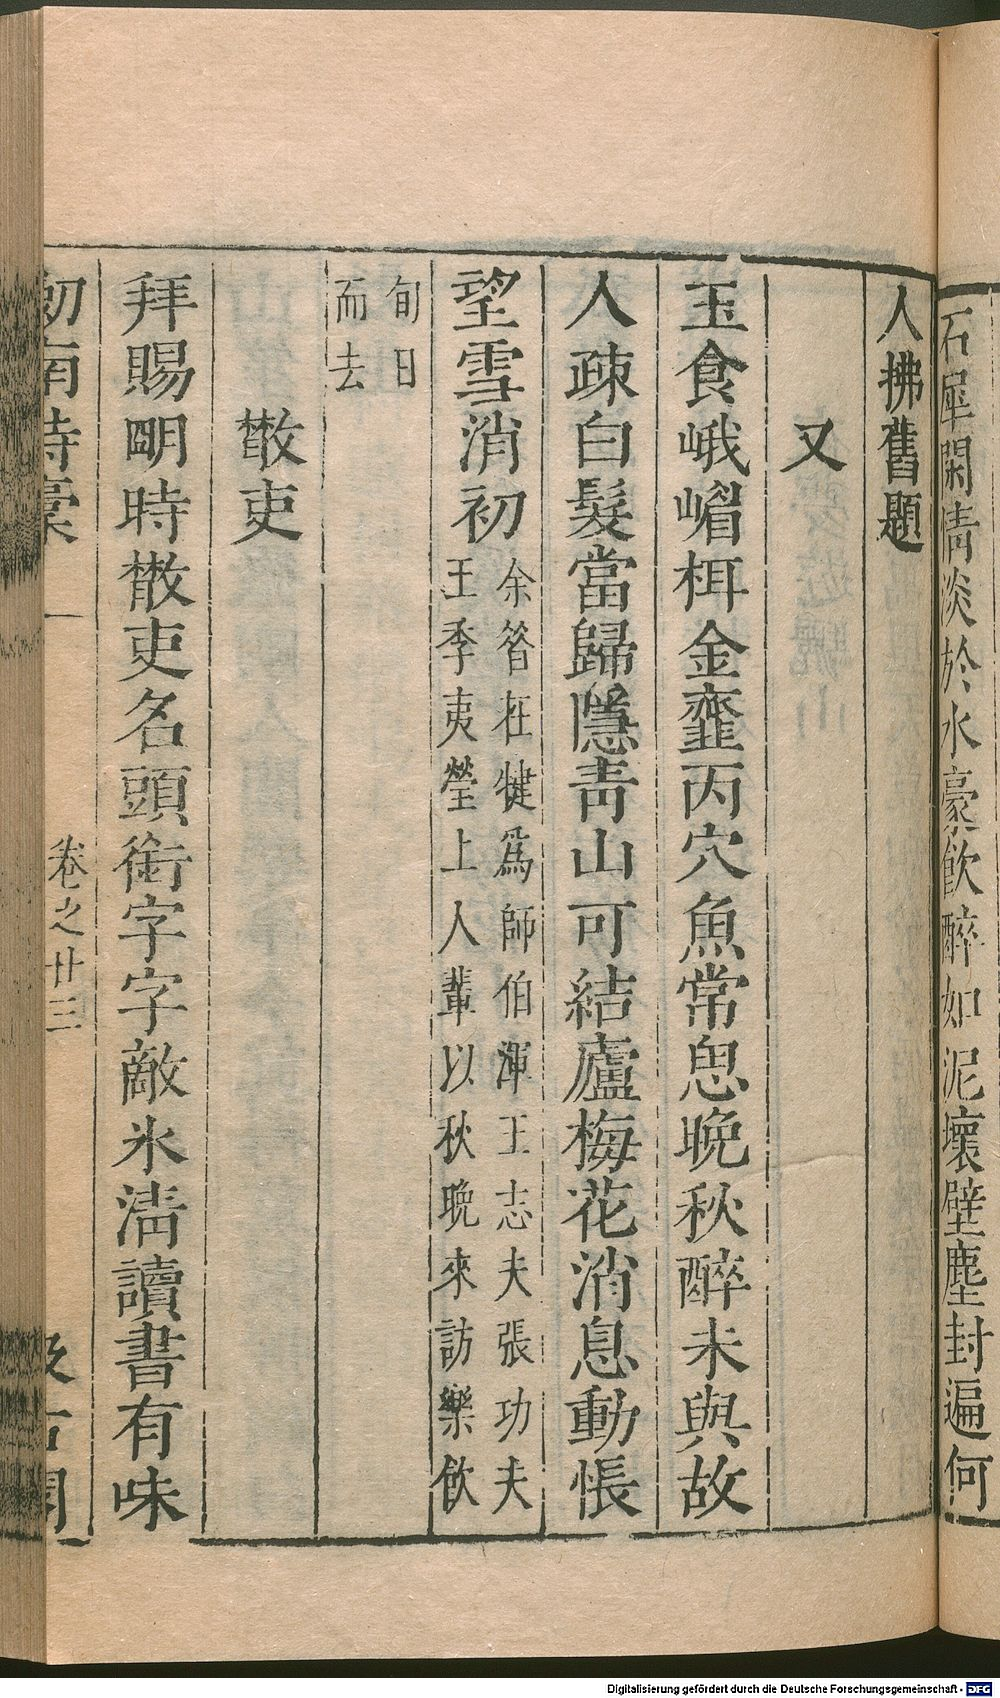 石犀閑淸淡於水豪飮醉如泥壞壁塵封遍何
人拂舊題
又
玉食峨嵋栮金虀丙穴魚常思晚秋醉未與故
人疎白髮當歸隱靑山可結廬梅花消息動悵
望雪消初
余昝在犍爲師伯渾王志夫張功夫
王季夷瑩上人輩以秋晚來訪樂飮
旬日
而去
㪚吏
拜賜明時㪚吏名頭銜字字敵氷淸讀書有味
劒南詩稾
卷之廿三
汲古閣
Digitalisierung gefördert durch die Deutsche Forschungsgemeinschaft - DFG